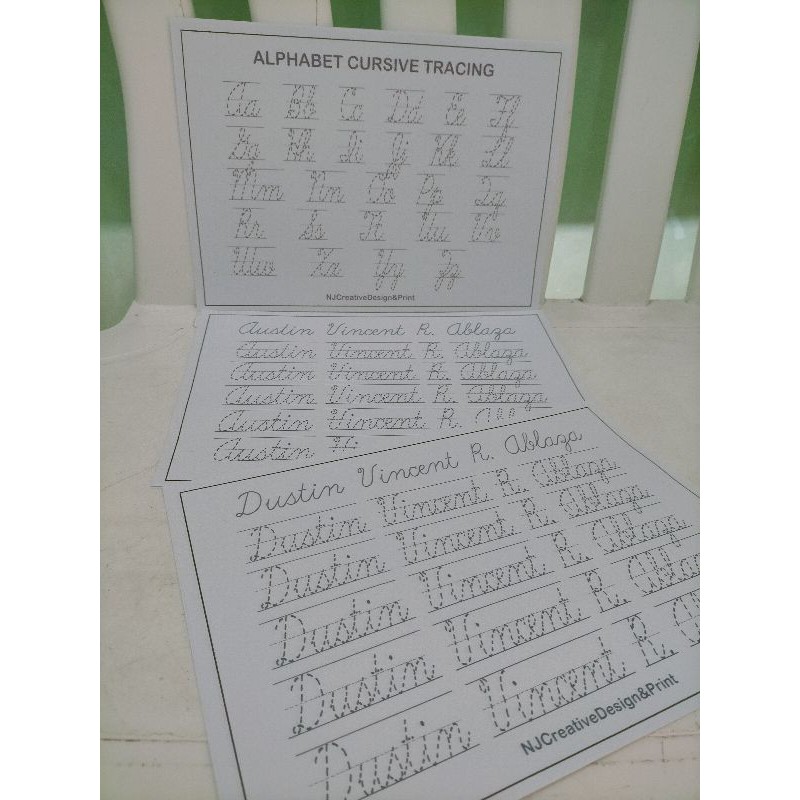 ALPHABET CURSIVE TRACING
Aa Bb Cc Dd Ee Ff
Gg Hh Ii Jj Kk Ll
Mm Nn Oo Pp Qq
Rr Ss Tt Uu Vv
Ww Xx Yy Zz
NJCreativeDesign&Print
Austin Vincent R. Ablaza
Austin Vincent R. Ablaza
Austin Vincent R. Ablaza
Austin Vincent R. Ablaza
Austin Vincent R. Abl
Austin Vi
Dustin Vincent R. Ablaza
Dustin Vincent R. Ablaza
Dustin Vincent R. Ablaza
Dustin Vincent R. Ablaza
Dustin Vincent R. Ablaz
Dustin Vincent R. A
NJCreativeDesign&Print